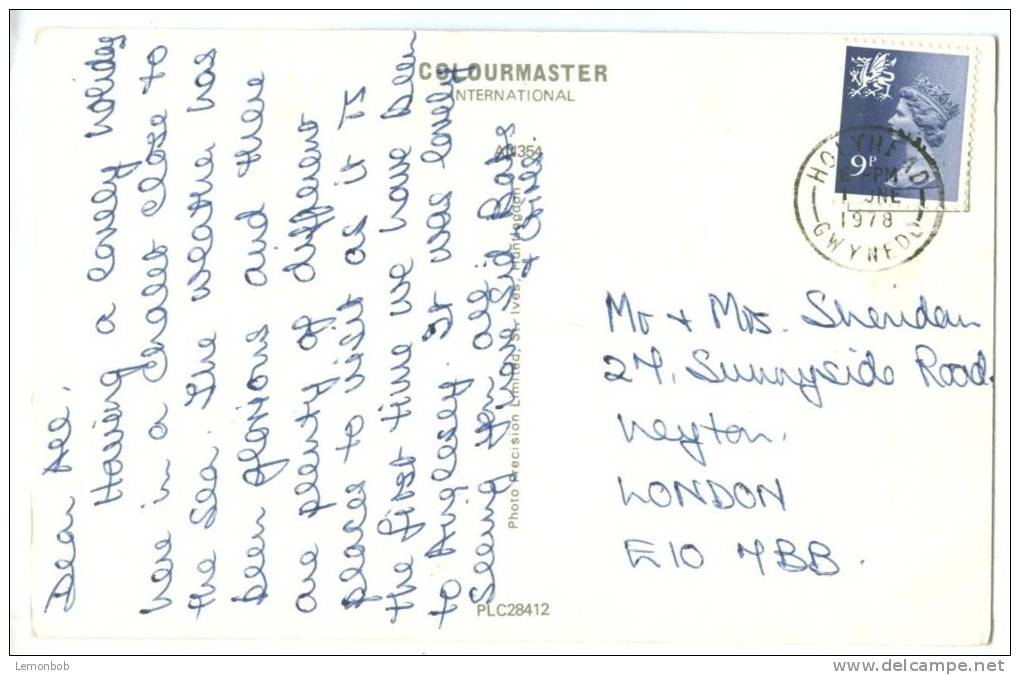 Dear All,
Having a lovely holiday
here in a chalet close to
the Sea. The weather has
been glorious and there
are plenty of different
places to visit as it IS
the first time we have been
to Anglesey. It was lovely
Seeing you all.
Sid Babs
COLOURMASTER
INTERNATIONAL
AN354
Photo Precision Limited, St. Ives, Huntingdon
PLC28412
9P
HOLYHEAD
-PM
1 JNE
1978
GWYNEDD
Mr + Mrs. Sheridan
27, Sunnyside Road.
Leyton.
LONDON
E10 7BB.
Lemonbob
www.delcampe.net